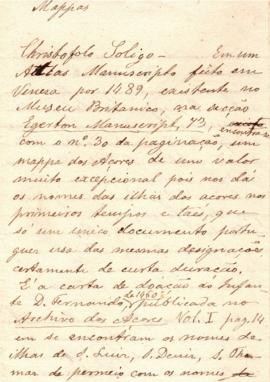 Mappas
Christofolo Soligo — Em um
Atlas Manuscripto feito em
Veneza por 1489, existente no
Museu Britanico, na secção
Egerton Manuscript, 73,
encontra-se
com o nº 30 da paginação, um
mappa dos Açores de um valor
muito excepcional pois nos dá
os nomes das ilhas dos açores nos
primeiros tempos e taes, que
só um unico documento portu-
guez usa das mesmas designações
certamente de curta duração.
É a carta de doação ao Infan-
te D. Fernando, publicada no
Archivo dos Açores Vol. I pag. 14
em se encontram os nomes de
ilhas de S. Luis, S. Deniz, S. Tho-
maz de permeio com os nomes de